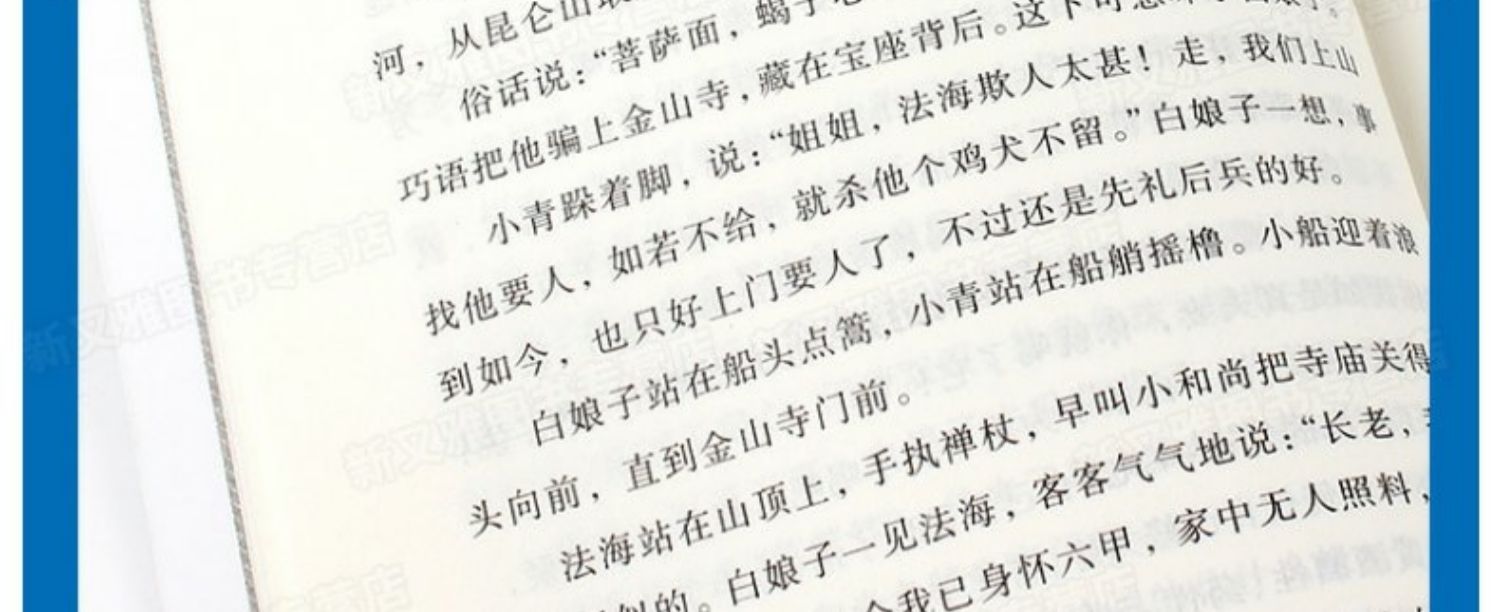 河，从昆仑山
俗话说：“菩萨面，蝎子
巧语把他骗上金山寺，藏在宝座背后。这下可急
小青跺着脚，说：“姐姐，法海欺人太甚！走，我们上山
找他要人，如若不给，就杀他个鸡犬不留。”白娘子一想，事
到如今，也只好上门要人了，不过还是先礼后兵的好。
白娘子站在船头点篙，小青站在船艄摇橹。小船迎着浪
头向前，直到金山寺门前。
法海站在山顶上，手执禅杖，早叫小和尚把寺庙关得
似的。白娘子一见法海，客客气气地说：“长老，
我已身怀六甲，家中无人照料，
新又雅图书专营店